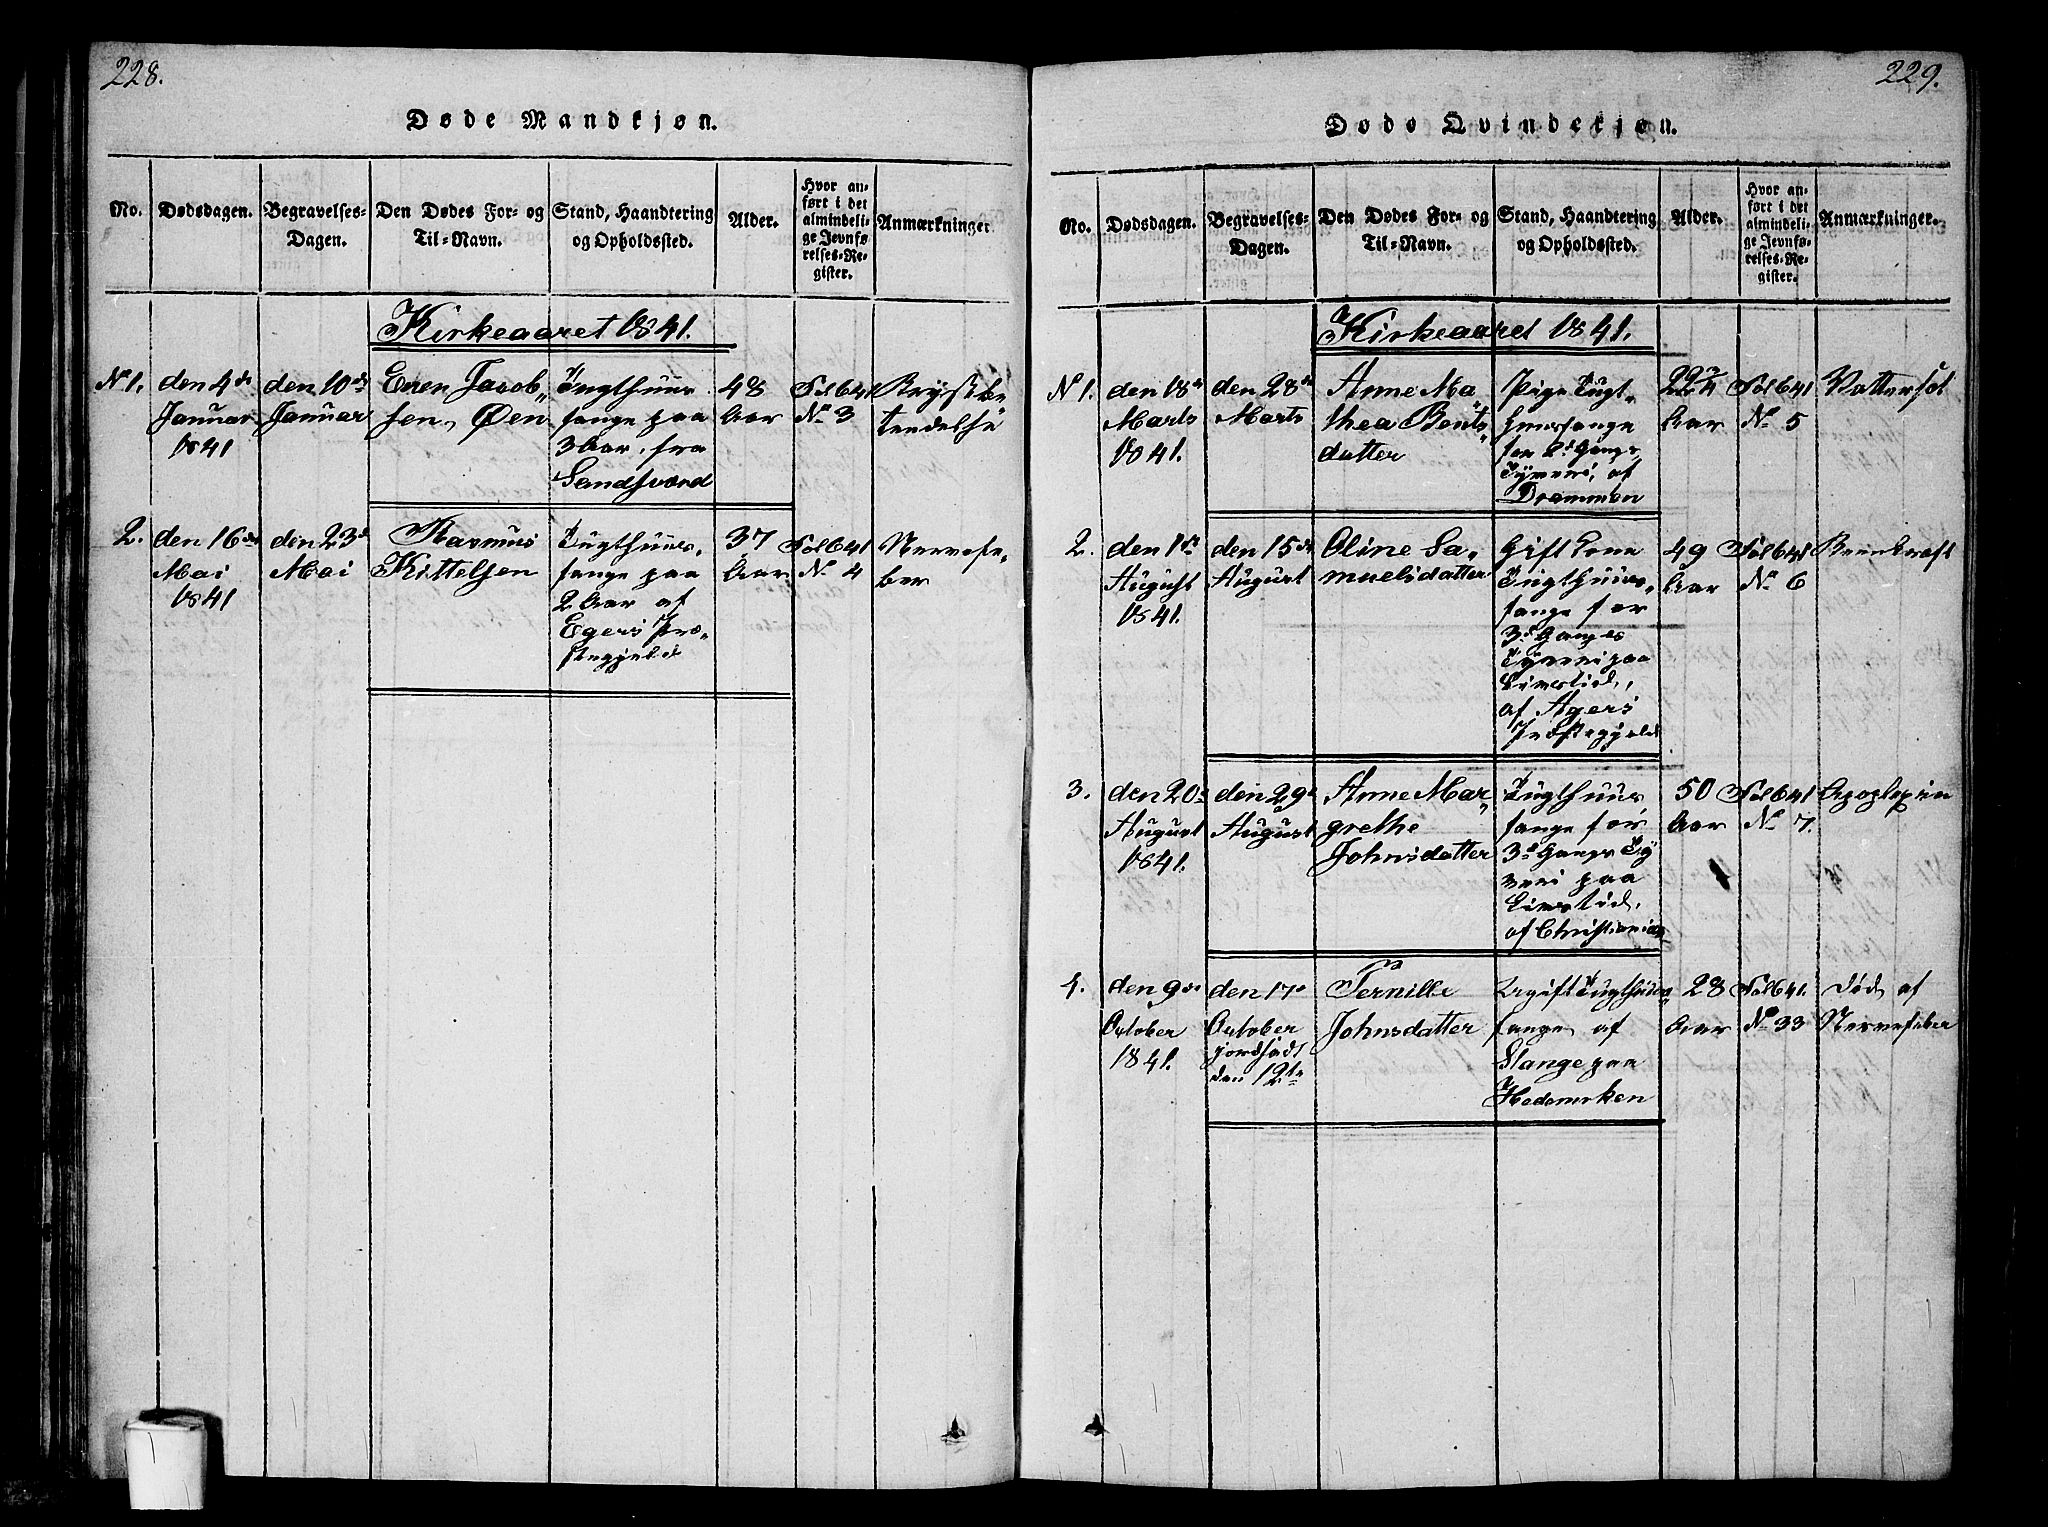 228.
Døde Mandkjøn.
No.
Dødsdagen.
Begravelses-
Dagen.
Den Dødes For- og
Til-Navn.
Stand, Haandtering
og Opholdssted.
Alder.
Hvor an-
ført i det
almindeli-
ge Jevnfø-
relses-Re-
gister.
Anmærkninger
Kirkeaaret 1841.
No 1.
den 4de
Januar
1841
den 10de
Januar
Even Jacob-
sen, Øen
Tugthuus
fange paa
3 Aar, fra
Sandsværd
48
Aar
Fol 641
No 3
Brystbe
tendelse
2.
den 16de
Mai
1841
den 23d
Mai
Rasmus
Kittelsen
Tugthuus-
fange paa
2 Aar af
Egers Præ-
stegjeld
37
Aar
Fol 641
No 4
Nervefe-
ber
229.
Døde Qvindekjøn.
No.
Dødsdagen.
Begravelses-
Dagen.
Den Dødes For- og
Til-Navn.
Stand, Haandtering
og Opholdssted.
Alder.
Hvor an-
ført i det
almindeli-
ge Jevnfø-
relses-Re-
gister.
Anmærkninger.
Kirkeaaret 1841.
No 1.
den 18de
Marts
1841.
den 28de
Marts
Anne Ma-
thea Bents-
datter
Pige Tugt-
huusfange
for 2d Gangs
Tyveri, af
Drammen
Aar
Fol 641
No 5
Vattersot
2.
den 1ste
August
1841.
den 15de
August
Oline Sa-
muelsdatter
Gift Kone
Tugthuus-
fange for
3d Ganges
Tyveri paa
Livstid,
af Agers
Præstegjeld
49
Aar
Fol 641
No 6
3.
den 20de
August
1841.
den 29de
August
Anne Mar-
grethe
Johnsdatter
Tugthuus
fange for
3d Gangs Ty
veri paa
Livstid,
af Christiania
50
Aar
Fol 641
No 7.
Apoplexien
4.
den 9de
October
1841.
den 17de
October
jordfæst
den 12te
Pernille
Johnsdatter
Ugift Tugthuus-
fange, af
Stange paa
Hedemarken
28
Aar
Fol 641.
No 33
Død af
Nervefeber